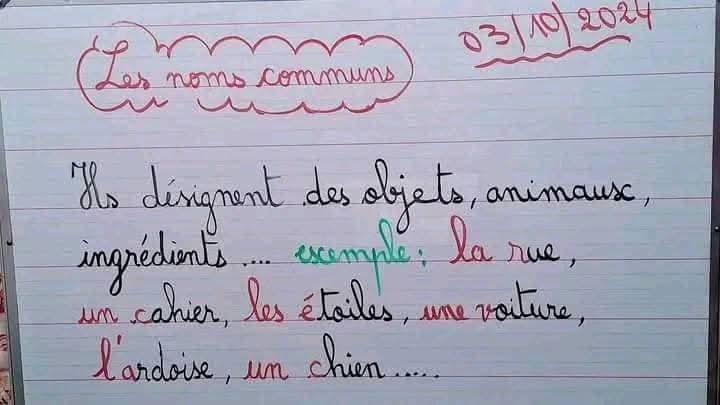 Les noms communs
03/10/2024
Ils désignent des objets, animaux,
ingrédients .... exemple : la rue,
un cahier, les étoiles, une voiture,
l'ardoise, un chien .....